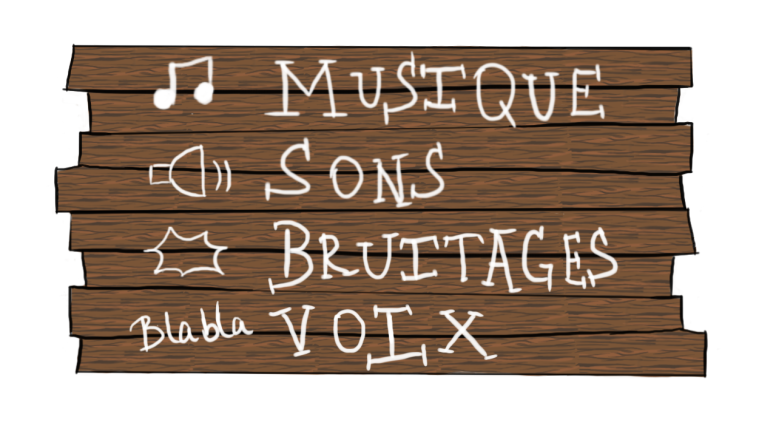 MUSIQUE
SONS
BRUITAGES
Blabla VOIX